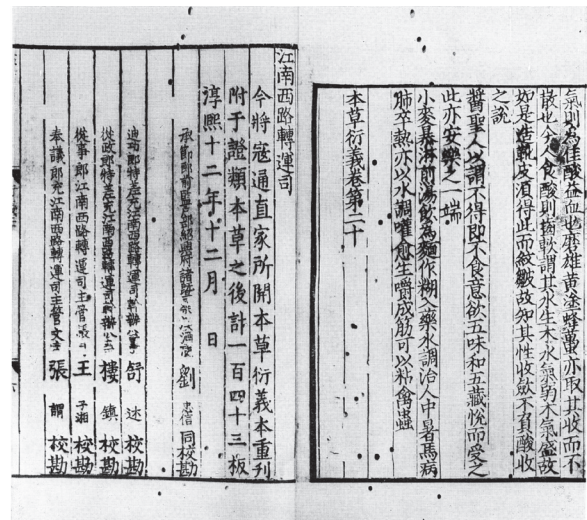 氣則為佳酸益血也磨雄黃塗蜂蠆亦取其收而不
散也今人食酸則齒軟謂其水生木水氣弱木氣盛故
如是造靴皮須得此而紋皺故知其性收斂不負酸收
之說
醬聖人以謂不得即不食意欲五味和五藏悅而受之
此亦安樂之一端
小麥暴淋煎湯飲為麵作糊入藥水調治人中暑馬病
肺卒熱亦以水調灌愈生嚼成筋可以粘禽蟲
本草衍義卷第二十
江南西路轉運司
今將寇通直家所開本草衍義本重刊
附于證類本草之後計一百四十三板
淳熙十二年十二月 日
承節郎 劉 忠信 同校勘
迪功郎特差充江南西路轉運司 舒 述 校勘
從政郎特差充江南西路轉運司 樓 鎮 校勘
從事郎江南西路轉運司主管 王 子湘 校勘
奉議郎充江南西路轉運司主管文字 張 謂 校勘